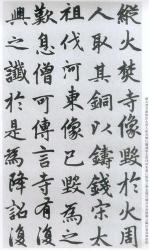 縱火焚寺像毀於火周
人取其銅以鑄錢宋大
祖伐河東像已毀為之
歎息僧可傳言寺有復
興之讖於是為降詔復